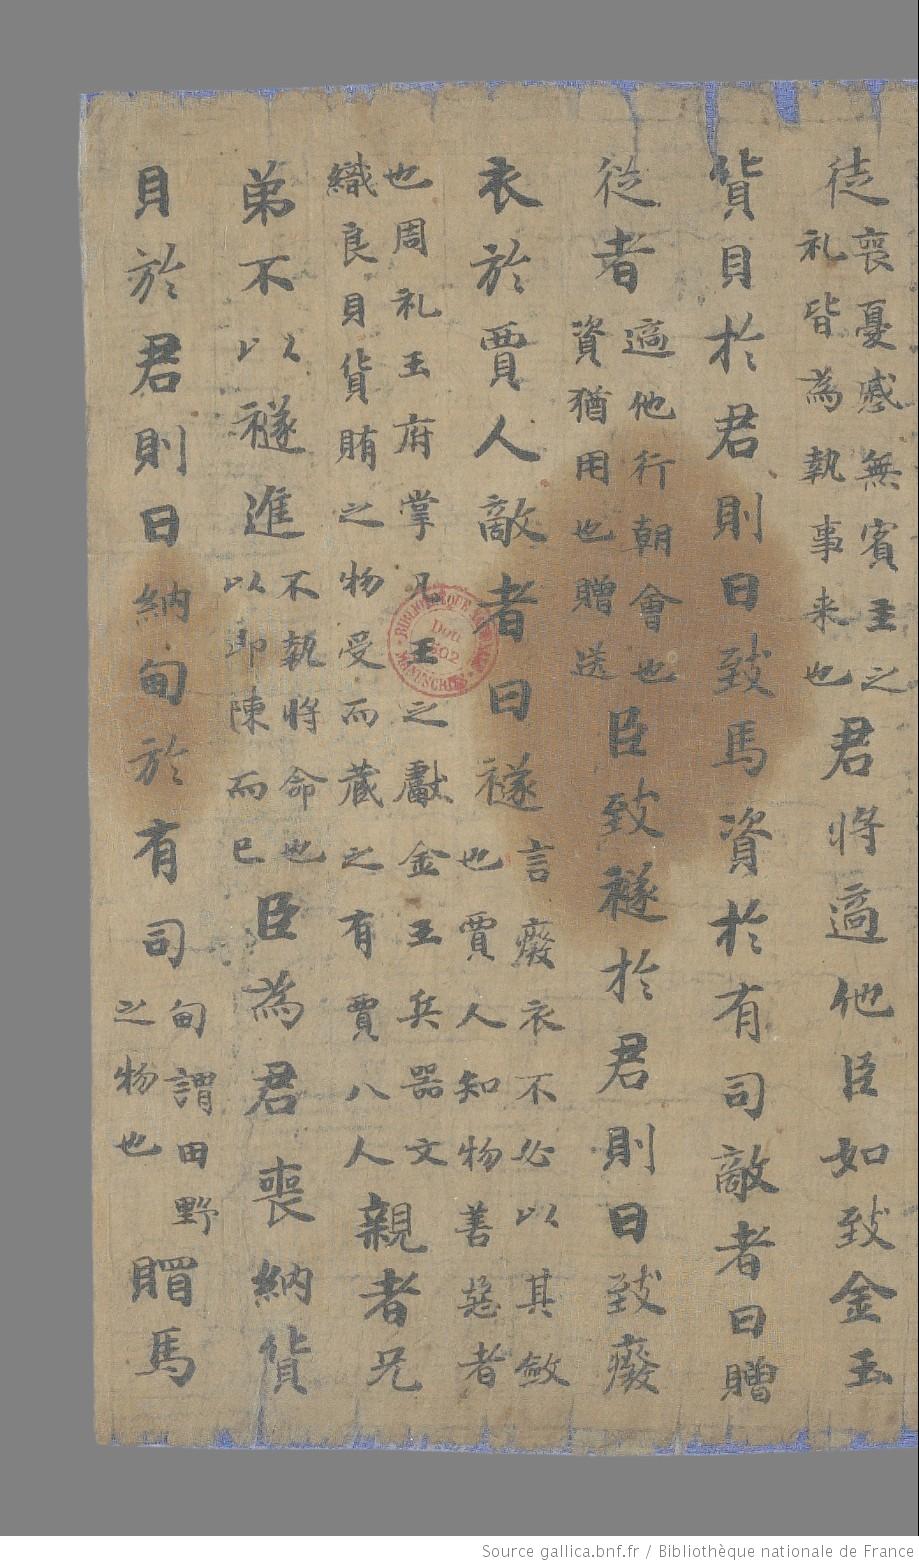 徒喪憂慼無賓主之礼皆為執事来也君將適他臣如致金玉
貨貝於君則曰致馬資於有司敵者曰贈
從者適他行朝會也資猶用也贈送臣致襚於君則曰致癈
衣於賈人敵者曰襚言癈衣不必以其斂也賈人知物善惡者
也周礼玉府掌凡王之獻金玉兵器文織良貝貨賄之物受而藏之有賈八人親者兄
弟不以襚進不執將命也以即陳而已臣為君喪納貨
貝於君則曰納甸於有司甸謂田野之物也賵馬
BIBLIOTHEQUE
MANUSCRITS
Don
Source gallica.bnf.fr / Bibliothèque nationale de France